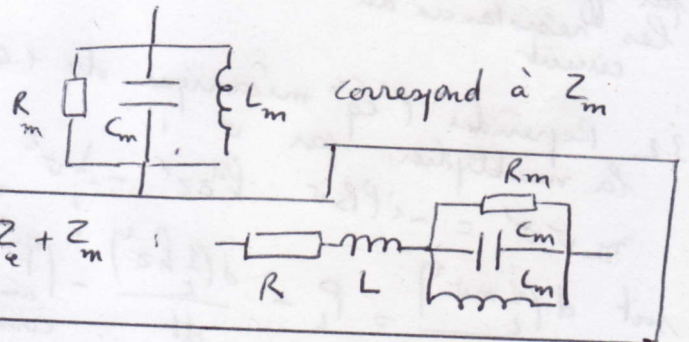 R_m C_m L_m correspond à Z_m
Z_e + Z_m :
R L R_m C_m L_m